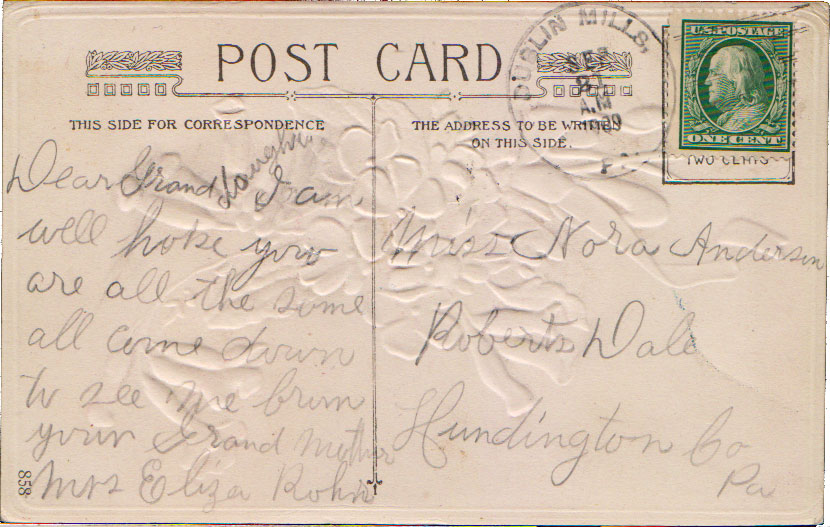 POST CARD
THIS SIDE FOR CORRESPONDENCE
THE ADDRESS TO BE WRITTEN
ON THIS SIDE.
DUBLIN MILLS,
21
A.M
1909
U.S. POSTAGE
ONE CENT
TWO CENTS
Dear Grand daughter I am
well hope your
are all the same
all come down
to see me
your Grand Mother
Mrs Eliza
Miss Nora Anderson
Roberts Dale
Hundington Co
Pa
858